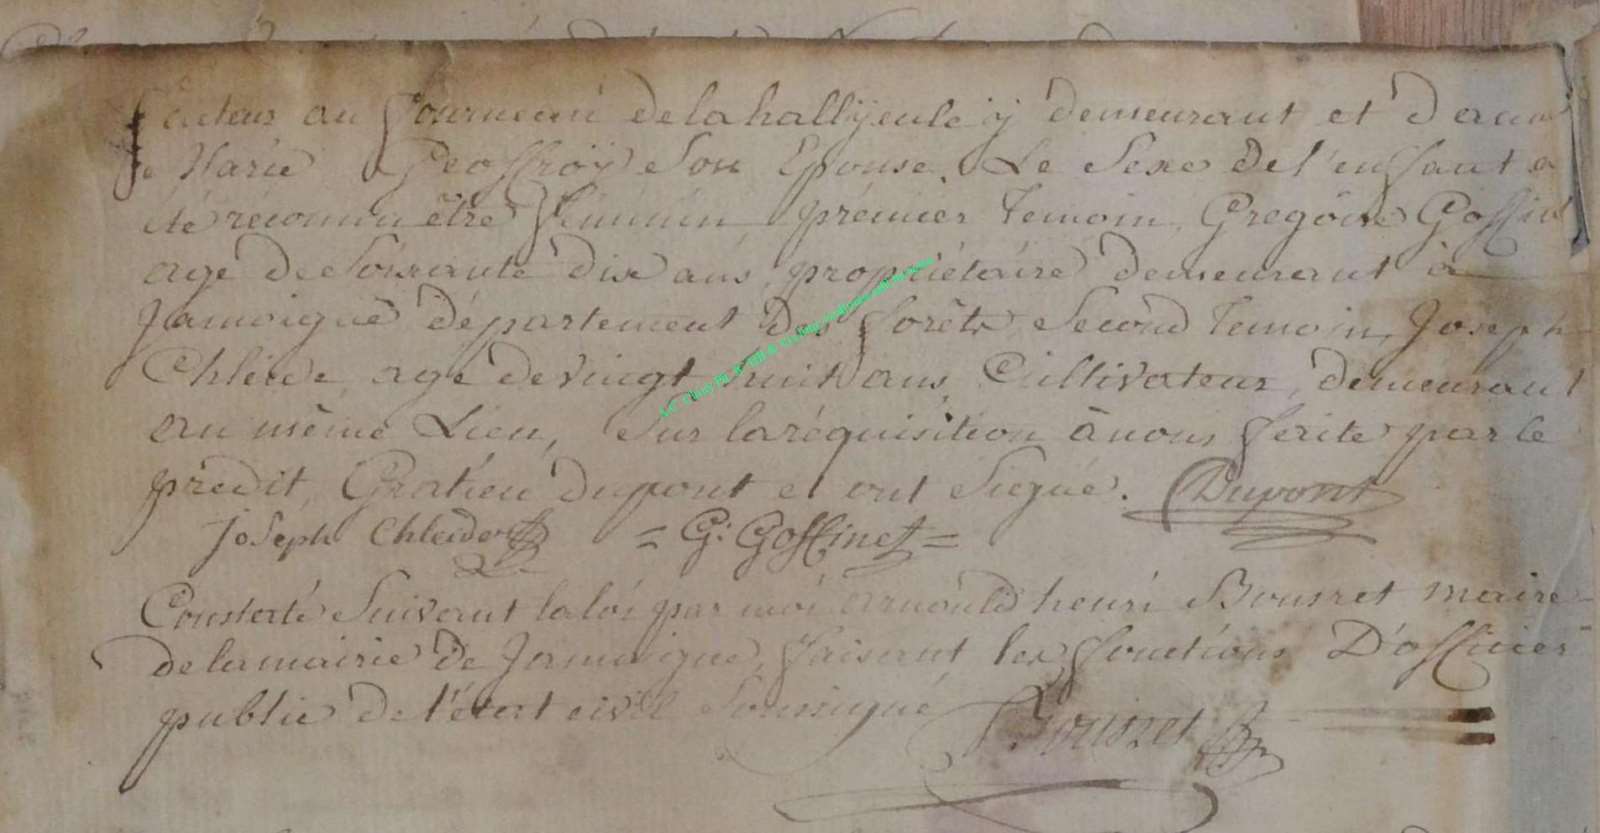 facteur au fourneau de la hallyeule y demeurant et d'anne
Marie Geoffroÿ Son Epouse. Le Sexe de l'enfant a
été réconnu être féminin premier temoin, Gregóire Goffinet
agé de Soixante dix ans, propriétaire demeurant à
Jamoigne département des forêts, Second temoin, Joseph
Chleide agé de vingt huit ans Cultivateur, demeurant
au même Lieu, Sur la réquisition à nous faite par le
prédit Gratien dupont et ont Signé. Dupont
Joseph Chleider = G: Goffinet =
Constaté Suivant la loi par moi arnould henri Bousret maire
de la mairie de Jamoigne, faisant les fonctions D'officier
public de l'état civil Soussigné
Bousret